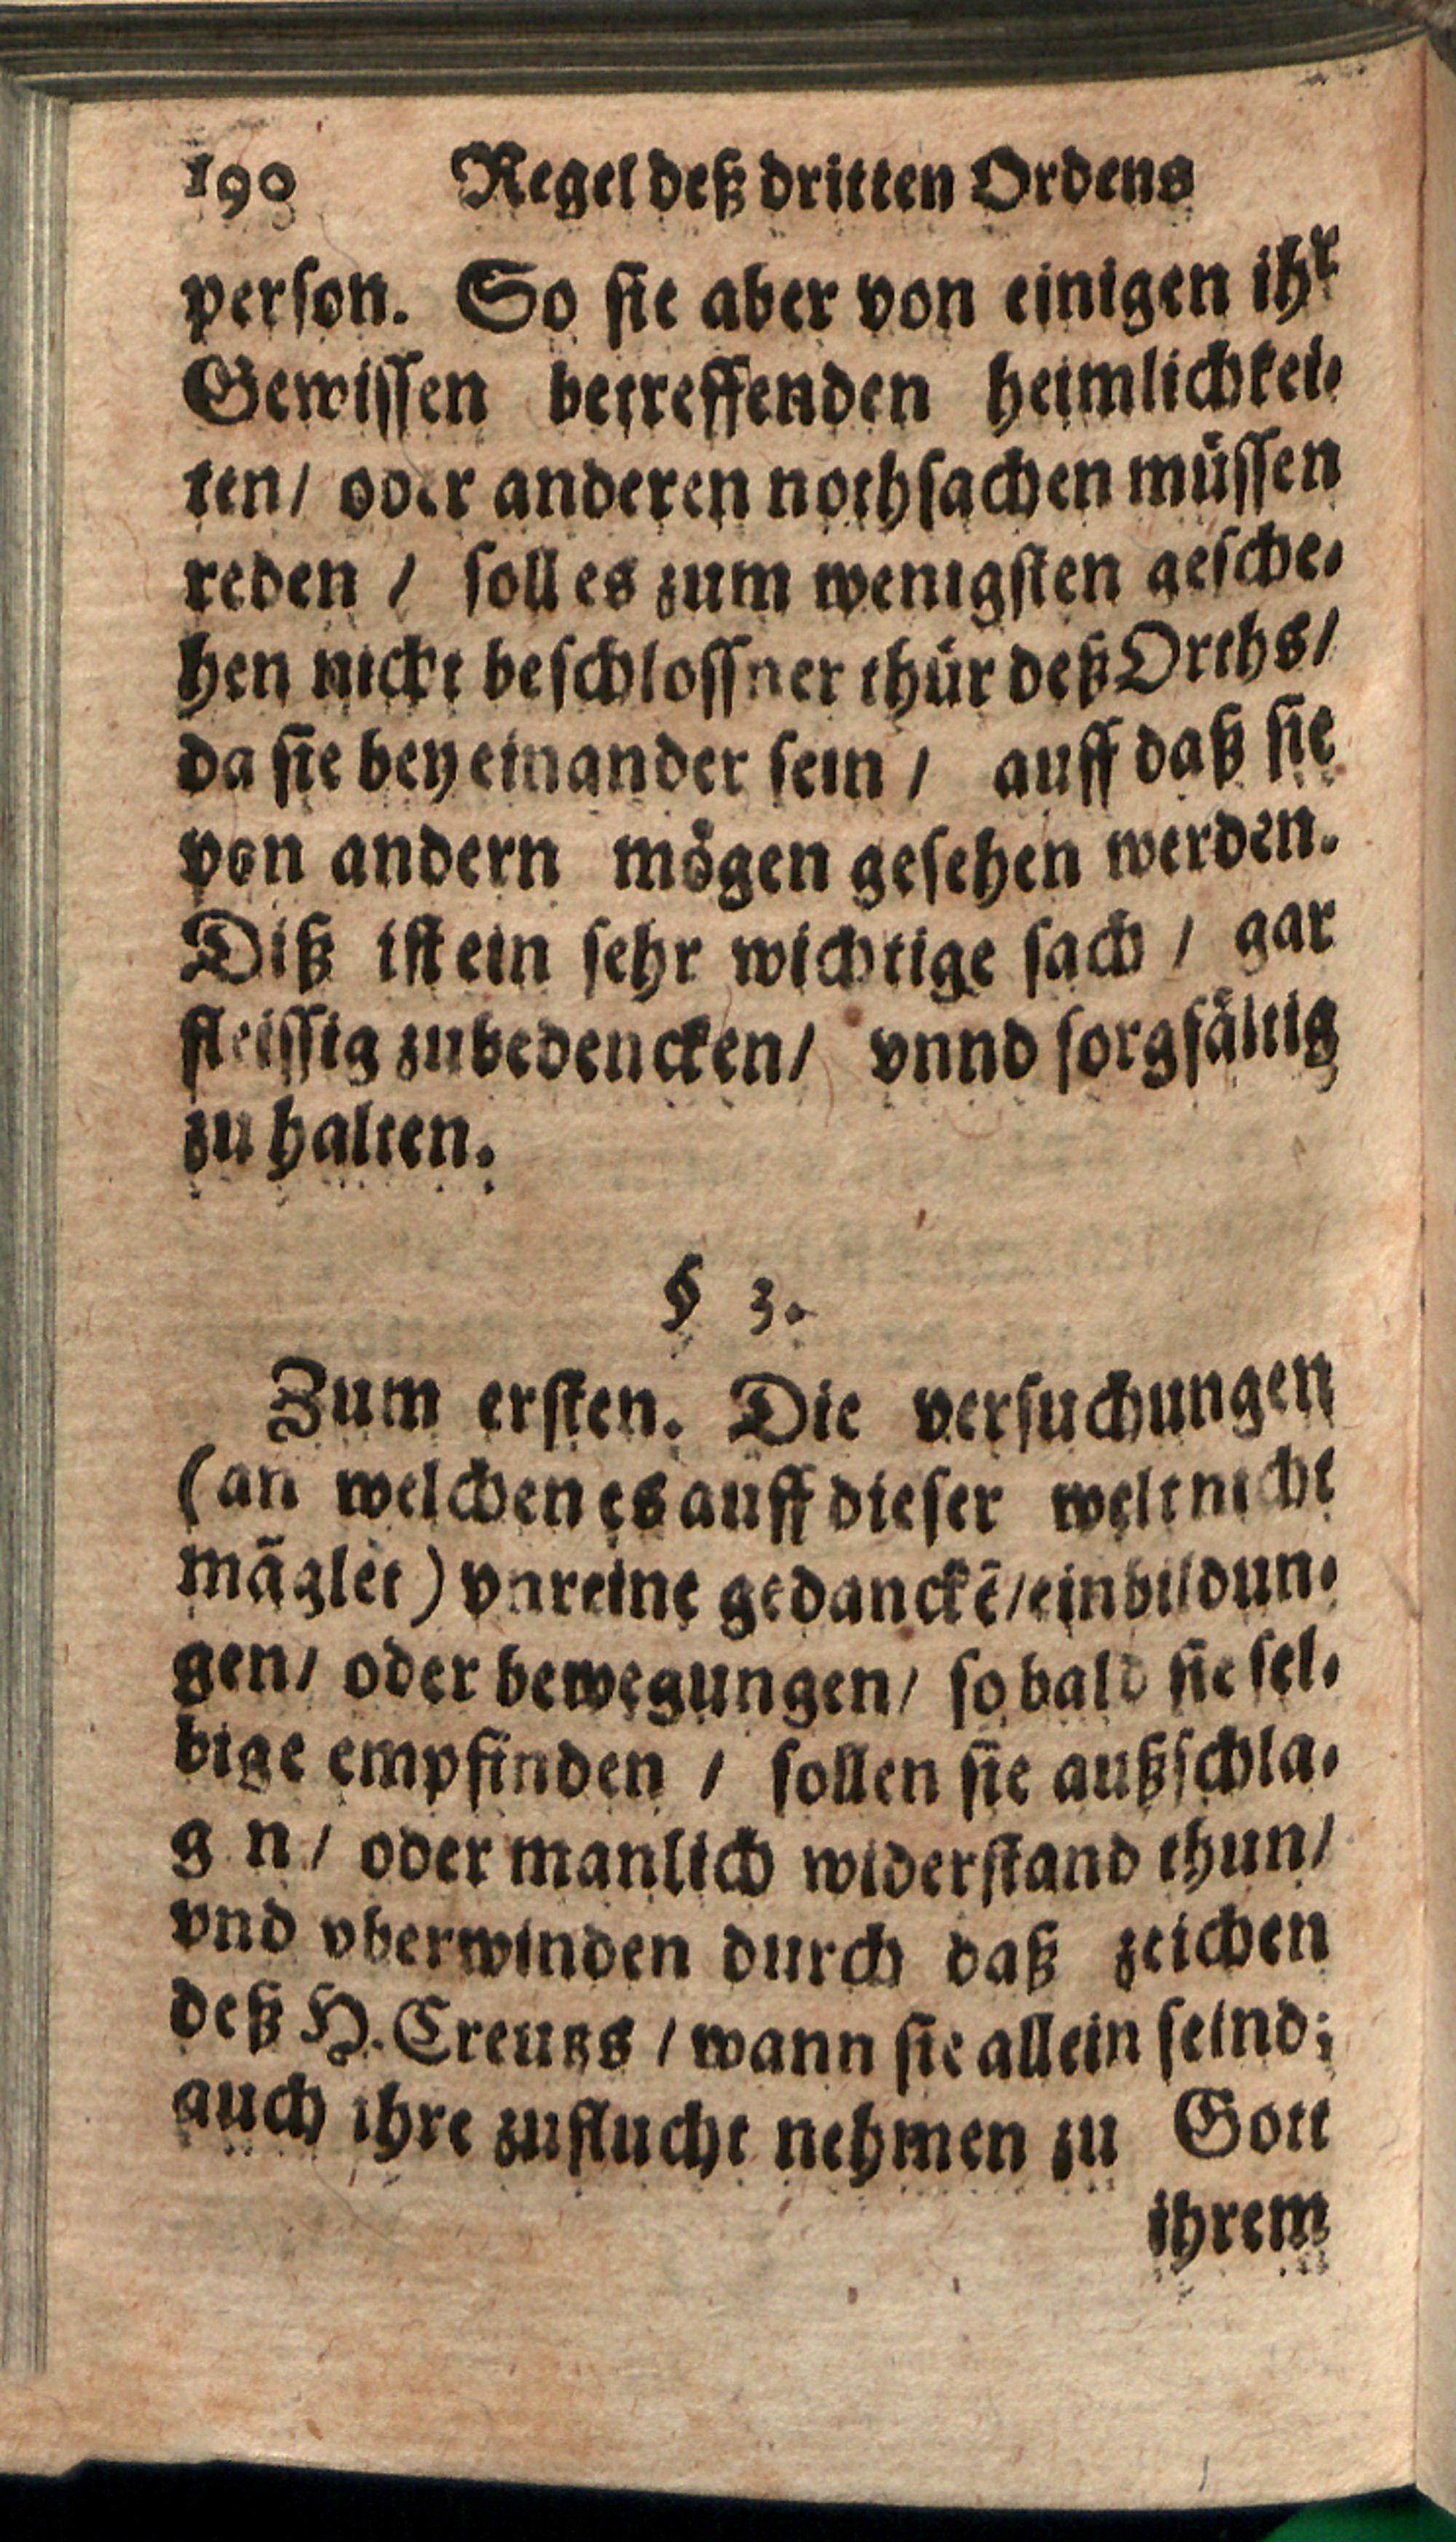 190 Regel deß dritten Ordens
person. So sie aber von einigen ihr
Gewissen betreffenden heimlichkei-
ten/ oder anderen nothsachen müssen
reden / soll es zum wenigsten gesche-
hen nicht beschlossner thür deß Orths/
da sie bey einander sein / auff daß sie
von andern mögen gesehen werden.
Diß ist ein sehr wichtige sach / gar
fleissig zubedencken/ vnnd sorgfältig
zu halten.
§ 3.
Zum ersten. Die versuchungen
(an welchen es auff dieser welt nicht
mãglet) vnreine gedanckẽ/einbildun-
gen/ oder bewegungen/ so bald sie sel-
bige empfinden / sollen sie außschla-
g n/ oder manlich widerstand thun/
vnd vberwinden durch daß zeichen
deß H. Creutzs / wann sie allein seind;
auch ihre zuflucht nehmen zu Gott
ihrem